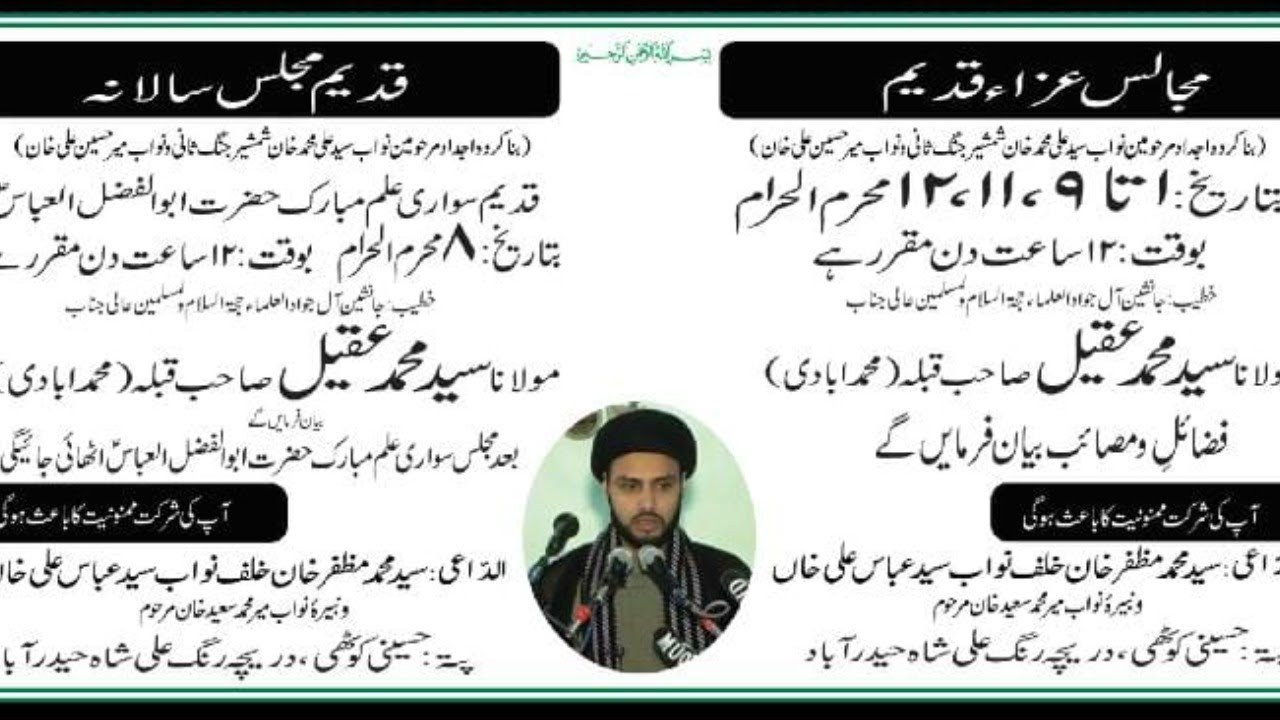 بسم اللہ الرحمن الرحیم
مجالس عزاء قدیم
(بنا کردہ اجداد مرحومین نواب سید علی محمد خان شمشیر جنگ ثانی و نواب میر حسین علی خان)
بتاریخ: ۱ تا ۹، ۱۱، ۱۲ محرم الحرام
بوقت: ۱۲ ساعت دن مقرر ہے
خطیب: جانشین آل جواد العلماء، حجۃ السلام ولمسلمین عالی جناب
ولانا سید محمد عقیل صاحب قبلہ (محمدابادی)
فضائلِ و مصائب بیان فرمایں گے
آپ کی شرکت ممنونیت کا باعث ہوگی
اعی: سید محمد مظفر خان خلف نواب سید عباس علی خاں
و نبیرۂ نواب میر محمد سعید خان مرحوم
حسینی کوٹھی، دریچہ رنگ علی شاہ حیدرآباد
قدیم مجلس سالانہ
(بنا کردہ اجداد مرحومین نواب سید علی محمد خان شمشیر جنگ ثانی و نواب میر حسین علی خان)
قدیم سواری علم مبارک حضرت ابوالفضل العباسؑ
بتاریخ: ۸ محرم الحرام بوقت: ۱۲ ساعت دن مقرر ہے
خطیب: جانشین آل جواد العلماء، حجۃ السلام ولمسلمین عالی جناب
مولانا سید محمد عقیل صاحب قبلہ (محمدابادی)
بیان فرمایں گے
بعد مجلس سواری علم مبارک حضرت ابوالفضل العباسؑ اٹھائی جائیگی
آپ کی شرکت ممنونیت کا باعث ہوگی
الدّاعی: سید محمد مظفر خان خلف نواب سید عباس علی خاں
و نبیرۂ نواب میر محمد سعید خان مرحوم
پتہ: حسینی کوٹھی، دریچہ رنگ علی شاہ حیدرآبا